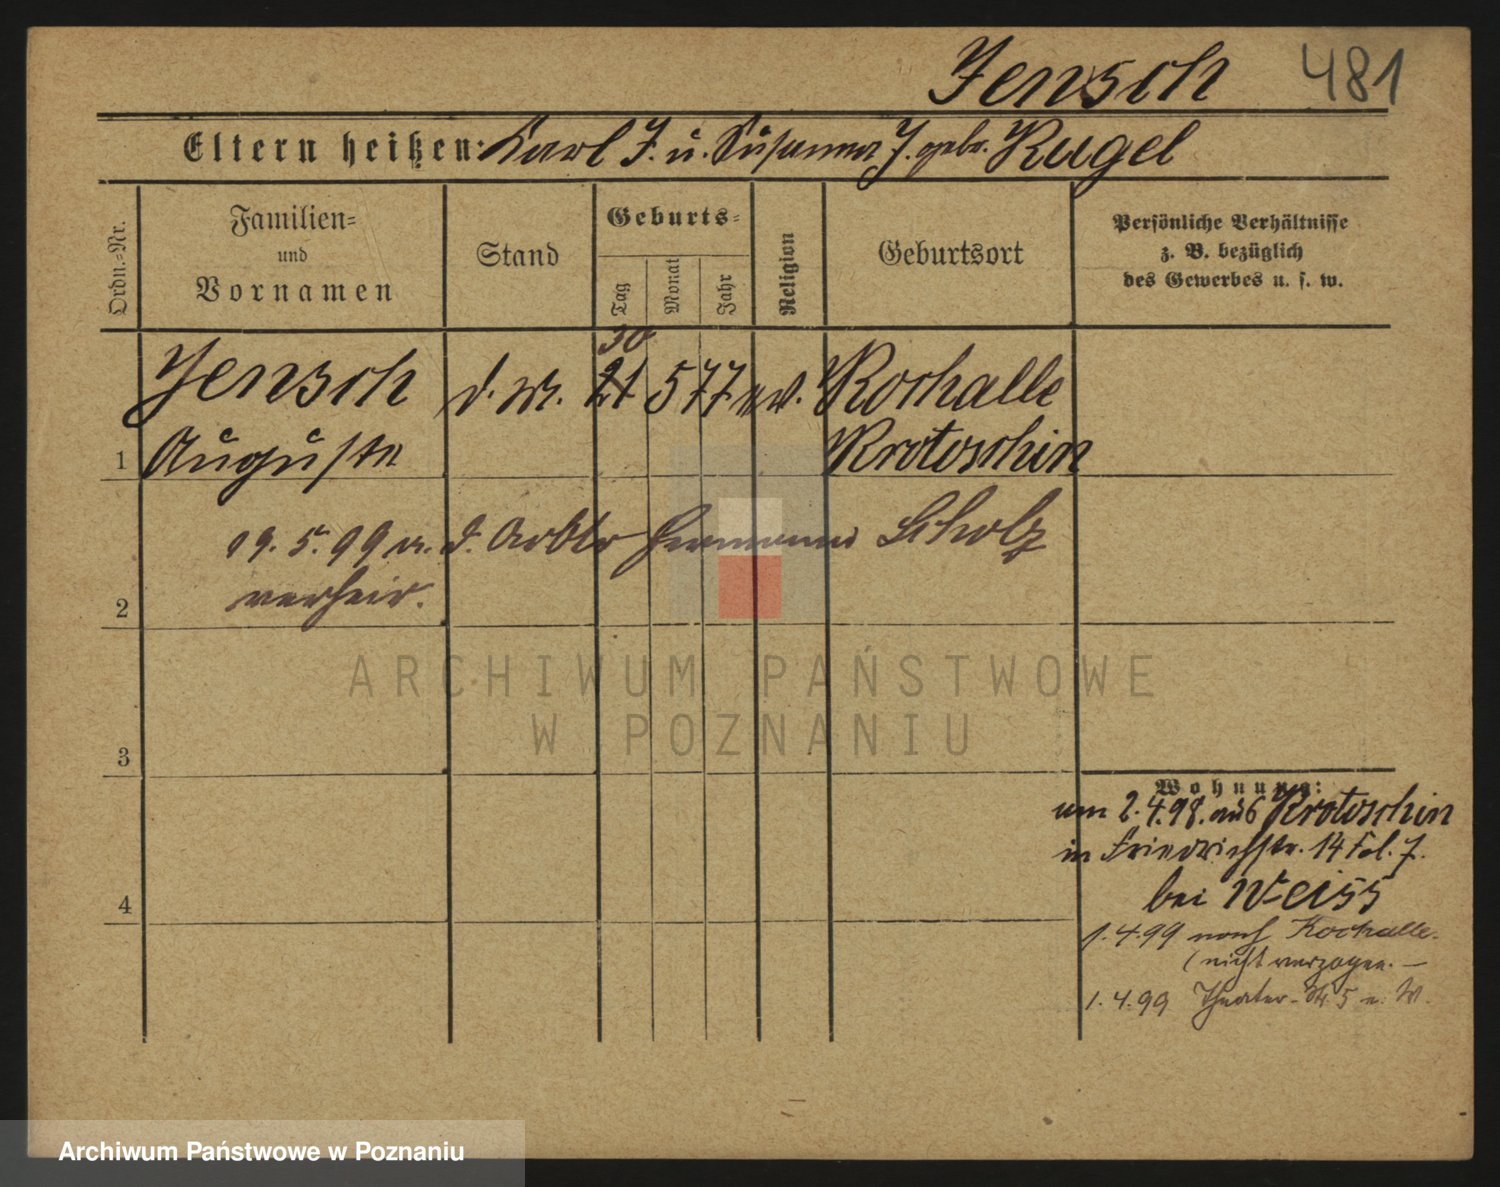 Jensch 481
Eltern heißen: Karl J. u. Susanna J. gebr. Kugel
Ordn.=Nr.
Familien=
und
Vornamen
Stand
Geburts=
Tag
Monat
Jahr
Religion
Geburtsort
Persönliche Verhältnisse
z. B. bezüglich
des Gewerbes u. s. w.
30
Jensch d. M. 21 5 77 ev. Rochalle
1 Auguste Krotoschin
19. 5. 99 m. d. Arbtr Hermann Scholz
2 verheir.
ARCHIWUM PAŃSTWOWE
W POZNANIU
3
Wohnung:
um 2.4.98. aus Krotoschin
in Friedrichstr. 14 Fol. 7.
bei Weiss
4
1.4.99 nach Rochalle.
(nicht verzogen. —
1.4.99 Theater-Str. 5 e. W.
Archiwum Państwowe w Poznaniu